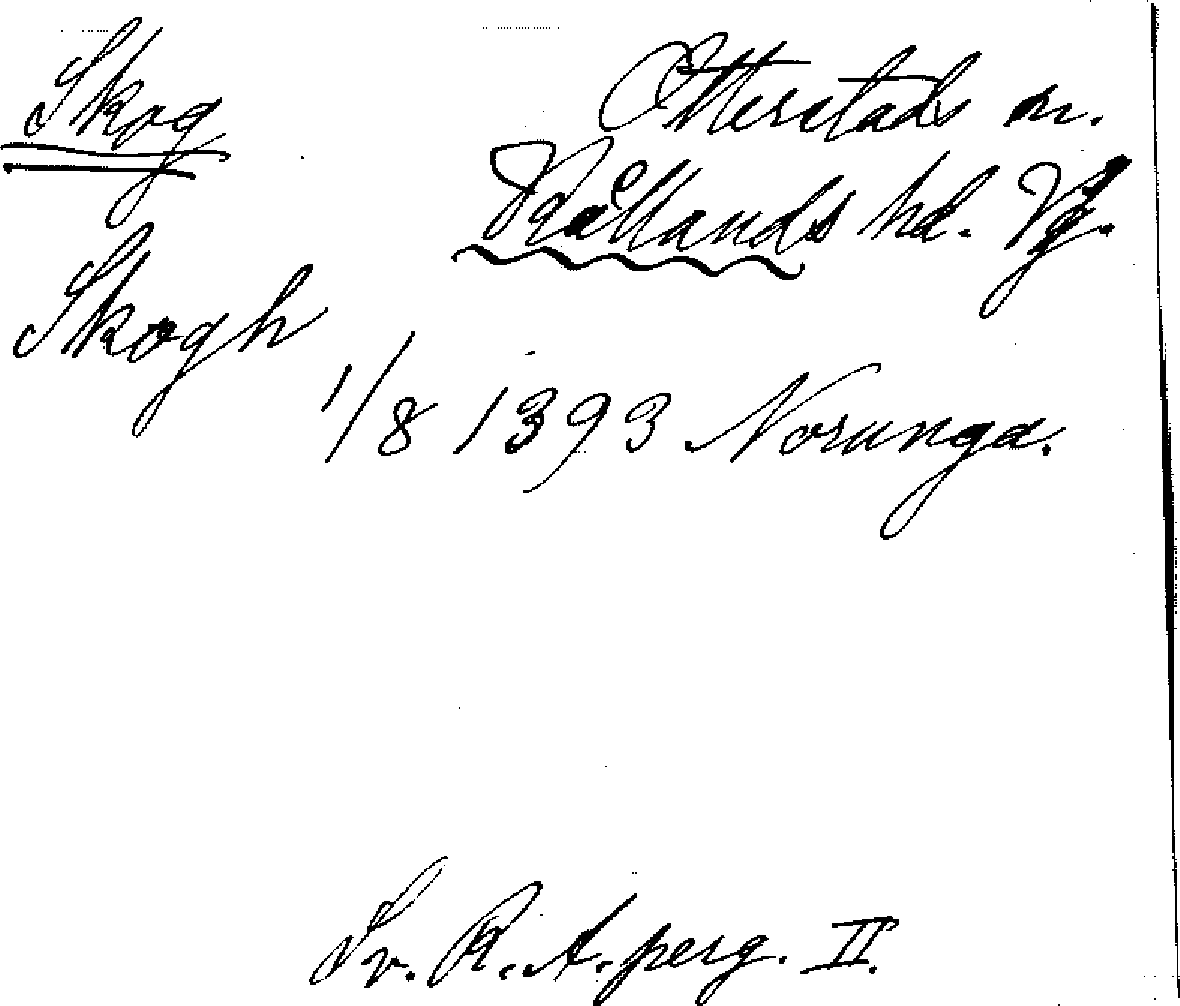 Skog
Otterstads sn.
Kållands hd. Vg.
Skogh
1/8 1393 Norunga.
Sv. R. A. perg. II.